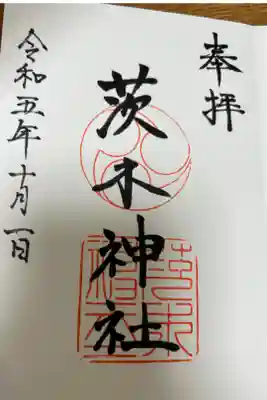 奉拝
茨木神社
令和五年十月一日